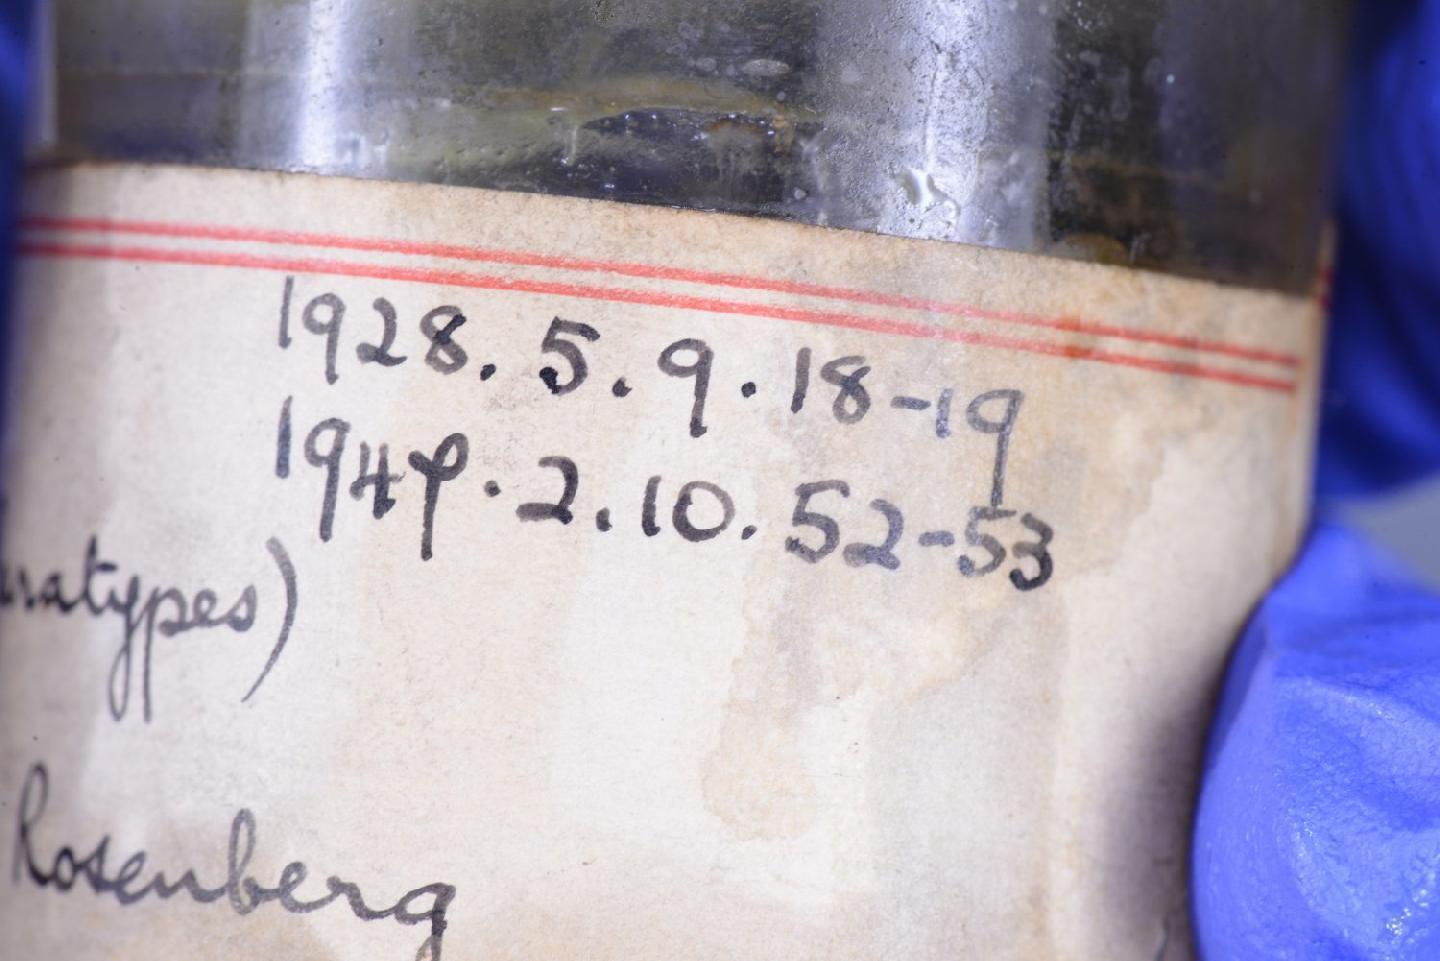 1928.5.9.18-19
1947.2.10.52-53
aratypes)
Rosenberg